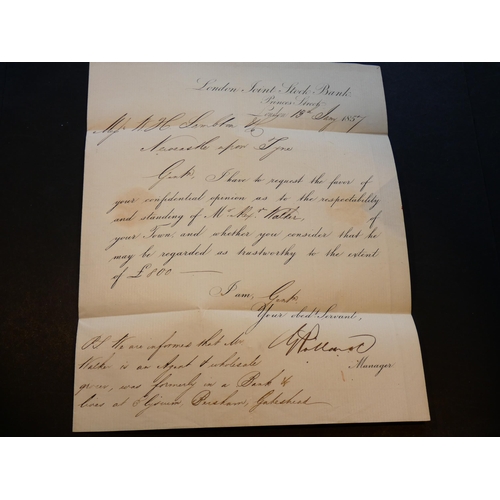 London Joint Stock Bank,
Princes Street,
London 18th 1857
Messrs W. H. & Co
Newcastle upon Tyne
Gentn, I have to request the favor of
your confidential opinion as to the respectability
and standing of Mr Walker, of
your Town, and whether you consider that he
may be regarded as trustworthy to the extent
of £800
I am, Gentn
Your obedt Servant,
Manager
PS We are informed that Mr
Walker is an Agent & wholesale
grocer, was formerly in a Bank &
lives at Gateshead